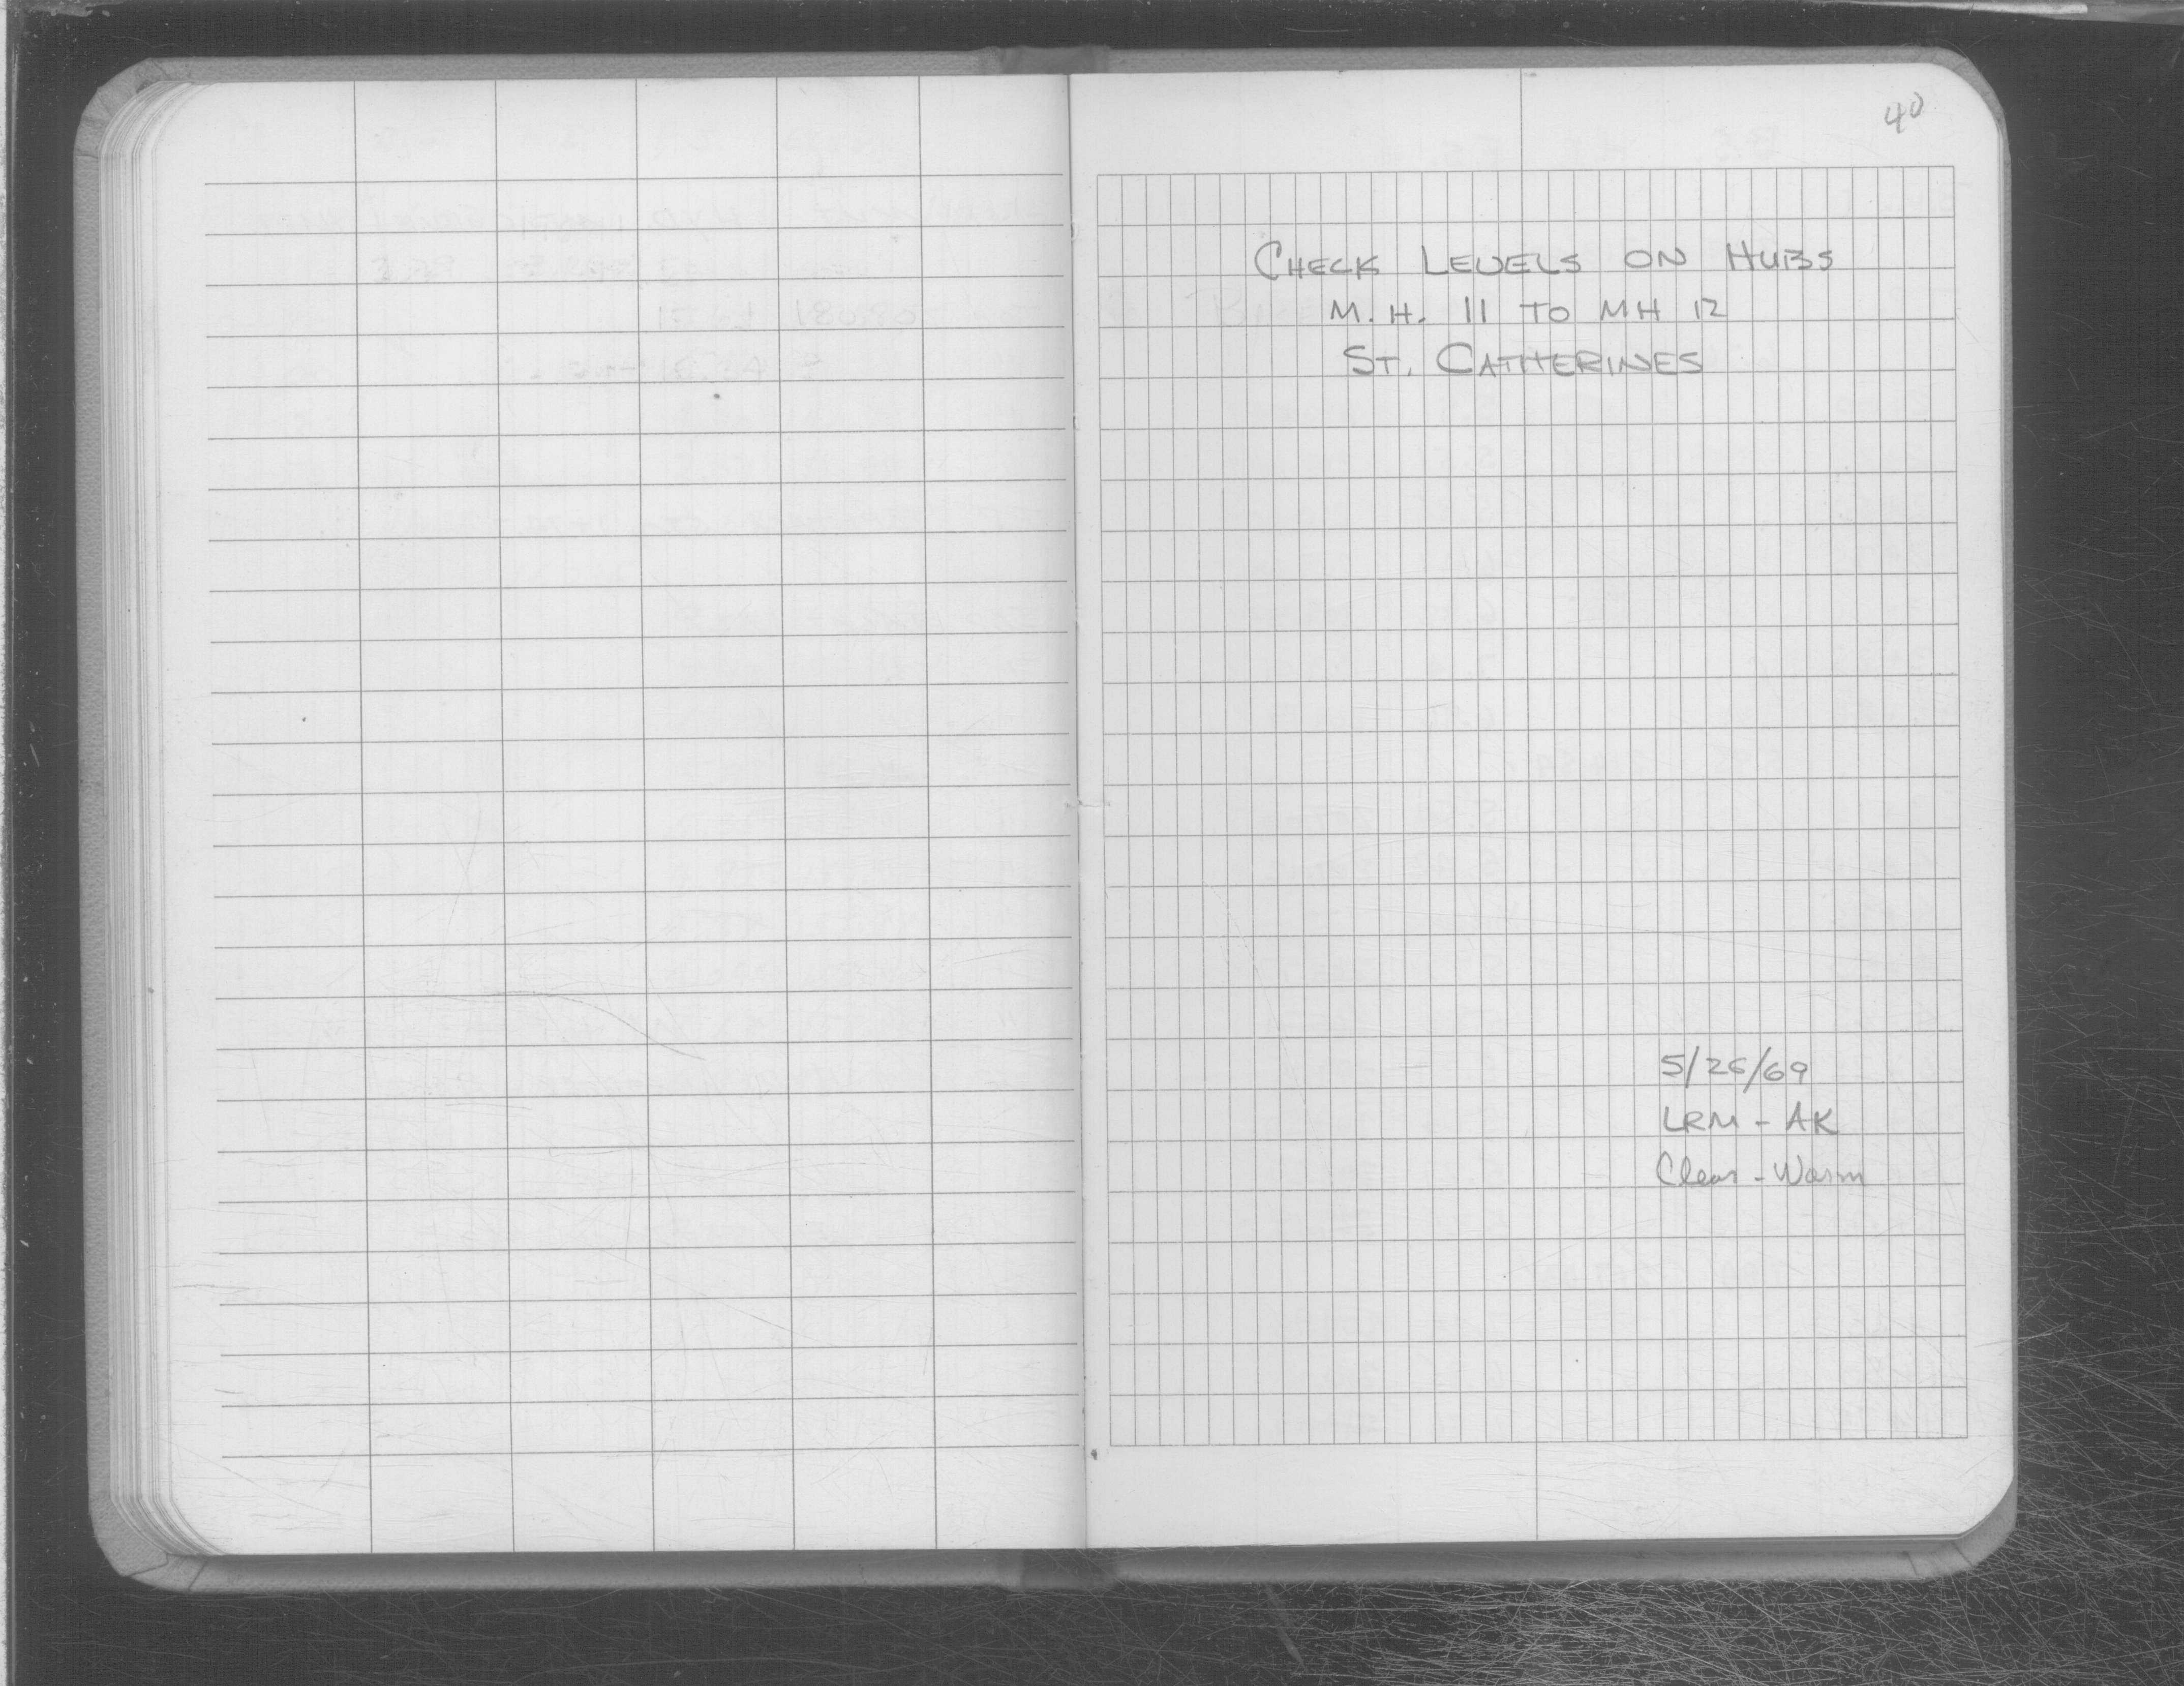 40
CHECK LEVELS ON HUBS
M.H. 11 TO MH 12
ST. CATHERINES
5/26/69
LRM - AK
Clear - Warm